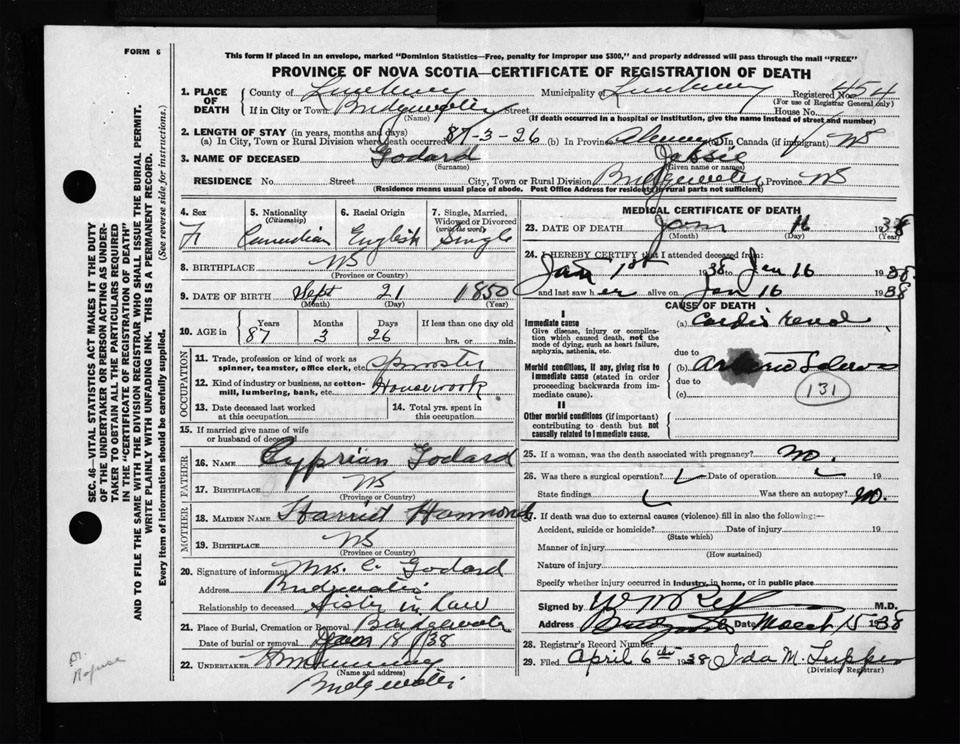 FORM 6
This form if placed in an envelope, marked "Dominion Statistics—Free, penalty for improper use $300," and properly addressed will pass through the mail "FREE"
PROVINCE OF NOVA SCOTIA—CERTIFICATE OF REGISTRATION OF DEATH
1. PLACE OF DEATH
County of Lunenburg Municipality of Lunenburg Registered No. 454
(For use of Registrar General only)
If in City or Town Bridgewater Street House No.
(Name) (If death occurred in a hospital or institution, give the name instead of street and number)
2. LENGTH OF STAY (in years, months and days)
(a) In City, Town or Rural Division where death occurred 87-3-26 (b) In Province Always (c) In Canada (if immigrant) NS
3. NAME OF DECEASED Godard Jessie
(Surname) (Given name or names)
RESIDENCE No. Street City, Town or Rural Division Bridgewater Province NS
(Residence means usual place of abode. Post Office Address for residents in rural parts not sufficient)
4. Sex F
5. Nationality (Citizenship) Canadian
6. Racial Origin English
7. Single, Married, Widowed or Divorced (write the word) Single
8. BIRTHPLACE NS
(Province or Country)
9. DATE OF BIRTH Sept 21 1850
(Month) (Day) (Year)
10. AGE in Years Months Days If less than one day old
87 3 26 hrs. or min.
OCCUPATION
11. Trade, profession or kind of work as spinner, teamster, office clerk, etc. Spinster
12. Kind of industry or business, as cotton-mill, lumbering, bank, etc. Housework
13. Date deceased last worked at this occupation
14. Total yrs. spent in this occupation
15. If married give name of wife or husband of deceased
FATHER
16. NAME Cyprian Godard
17. BIRTHPLACE NS
(Province or Country)
MOTHER
18. MAIDEN NAME Harriet Hammond
19. BIRTHPLACE NS
(Province or Country)
20. Signature of informant Mrs. C. Godard
Address Bridgewater
Relationship to deceased Sister in Law
21. Place of Burial, Cremation or Removal Bridgewater
Date of burial or removal Jan 18/38
22. UNDERTAKER
(Name and address)
Bridgewater
MEDICAL CERTIFICATE OF DEATH
23. DATE OF DEATH Jan 16 1938
(Month) (Day) (Year)
24. I HEREBY CERTIFY that I attended deceased from:
Jan 1st 1938 to Jan 16 1938
and last saw her alive on Jan 16 1938
CAUSE OF DEATH
I
Immediate cause
Give disease, injury or complication which caused death, not the mode of dying, such as heart failure, asphyxia, asthenia, etc.
(a) Cardio renal
due to
Morbid conditions, if any, giving rise to immediate cause (stated in order proceeding backwards from immediate cause).
(b) Arterio Sclerosis
due to
(c) 131
II
Other morbid conditions (if important) contributing to death but not causally related to immediate cause.
25. If a woman, was the death associated with pregnancy? No.
26. Was there a surgical operation? Date of operation 19
State findings Was there an autopsy? No.
27. If death was due to external causes (violence) fill in also the following:—
Accident, suicide or homicide? Date of injury 19
(State which)
Manner of injury
(How sustained)
Nature of injury
Specify whether injury occurred in industry, in home, or in public place
Signed by M.D.
Address Bridgewater Date March 15 1938
28. Registrar's Record Number
29. Filed April 6th 1938 Ida M. Tupper
(Division Registrar)
SEC. 46—VITAL STATISTICS ACT MAKES IT THE DUTY
OF THE UNDERTAKER OR PERSON ACTING AS UNDER-
TAKER TO OBTAIN ALL THE PARTICULARS REQUIRED
IN THE "CERTIFICATE OF REGISTRATION OF DEATH"
AND TO FILE THE SAME WITH THE DIVISION REGISTRAR WHO SHALL ISSUE THE BURIAL PERMIT.
WRITE PLAINLY WITH UNFADING INK. THIS IS A PERMANENT RECORD.
Every item of information should be carefully supplied. (See reverse side for instructions.)